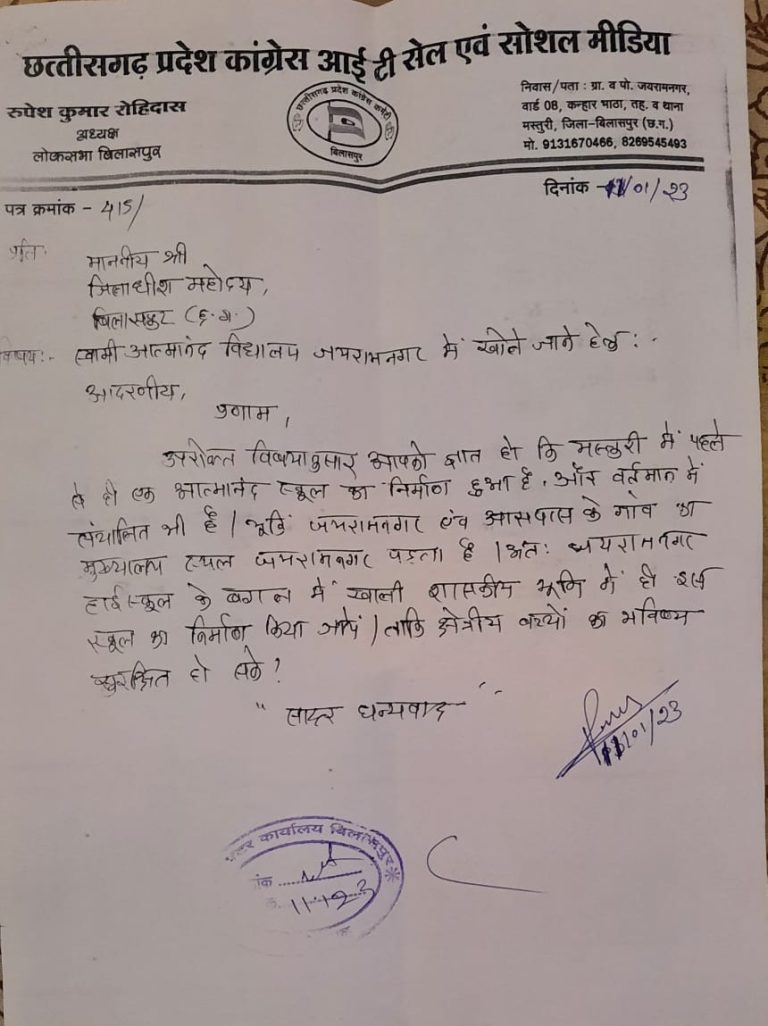 छत्तीसगढ़ प्रदेश कांग्रेस आई टी सेल एवं सोशल मीडिया
रुपेश कुमार रोहिदास
अध्यक्ष
लोकसभा बिलासपुर
छत्तीसगढ़ प्रदेश कांग्रेस कमेटी
बिलासपुर
निवास/पता : ग्रा. व पो. जयरामनगर,
वार्ड 08, कन्हार पाठा, तह. व थाना
मस्तुरी, जिला-बिलासपुर (छ.ग.)
मो. 9131670466, 8269545493
पत्र क्रमांक - 415/
दिनांक - 11/01/23
प्रति
माननीय श्री
जिलाधीश महोदय,
बिलासपुर (छ.ग.)
विषय:- स्वामी आत्मानंद विद्यालय जयरामनगर में खोले जाने हेतु :-
आदरणीय,
प्रणाम,
उपरोक्त विषयानुसार आपको ज्ञात हो कि मस्तुरी में पहले
से ही एक आत्मानंद स्कूल का निर्माण हुआ है, और वर्तमान में
संचालित भी है। चूंकि जयरामनगर एंव आसपास के गांव का
मुख्यालय स्थल जयरामनगर पड़ता है। अतः जयरामनगर
हाईस्कूल के बगल में खाली शासकीय भूमि में ही इस
स्कूल का निर्माण किया जाये। ताकि क्षेत्रीय बच्चों का भविष्य
सुरक्षित हो सके?
" सादर धन्यवाद "
11/01/23
कार्यालय बिलासपुर
11-1-23